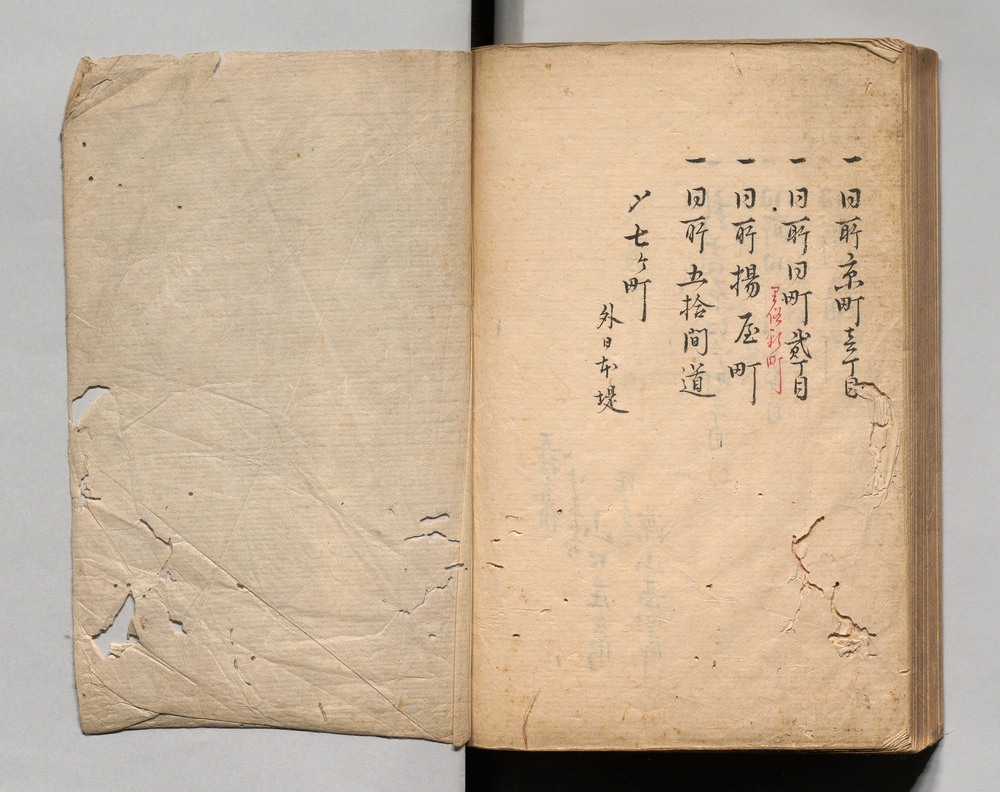 一 同所京町壱丁目
一 同所同町貳丁目
里俗新町
一 同所揚屋町
一 同所五拾間道
〆七ケ町
外日本堤